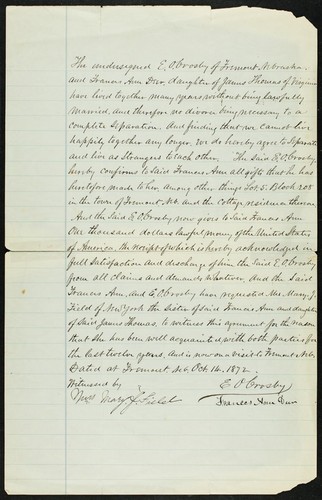 The undersigned E. O. Crosby of Fremont, Nebraska,
and Frances Ann Dew, daughter of James Thomas of Virginia
have lived together many years without being lawfully
married, and therefore no divorce being necessary to a
complete separation. And finding that we cannot live
happily together any longer. We do hereby agree to Separate
and live as Strangers to each other. The Said E. O. Crosby,
hereby confirms to Said Frances Ann all gifts that he has
heretofore made to her, among other things Lot 5. Block 208
in the town of Fremont Neb. and the Cottage residence thereon
And the Said E. O. Crosby now gives to Said Frances Ann
One thousand dollars lawful money of the United States
of America, the receipt of which is hereby acknowledged in
full Satisfaction and discharge of him the Said E. O. Crosby
from all claims and demands whatever. And the Said
Frances Ann, and E. O. Crosby have requested Mrs. Mary J.
Field of New York the Sister of Said Frances Ann and daughter
of Said James Thomas, to witness this agreement for the reason
that She has been well acquainted with both parties for
the last twelve years, and is now on a visit to Fremont Neb.
Dated at Fremont Neb. Oct. 14. 1872.
Witnessed by E. O. Crosby
Mrs Mary J. Field Frances Ann